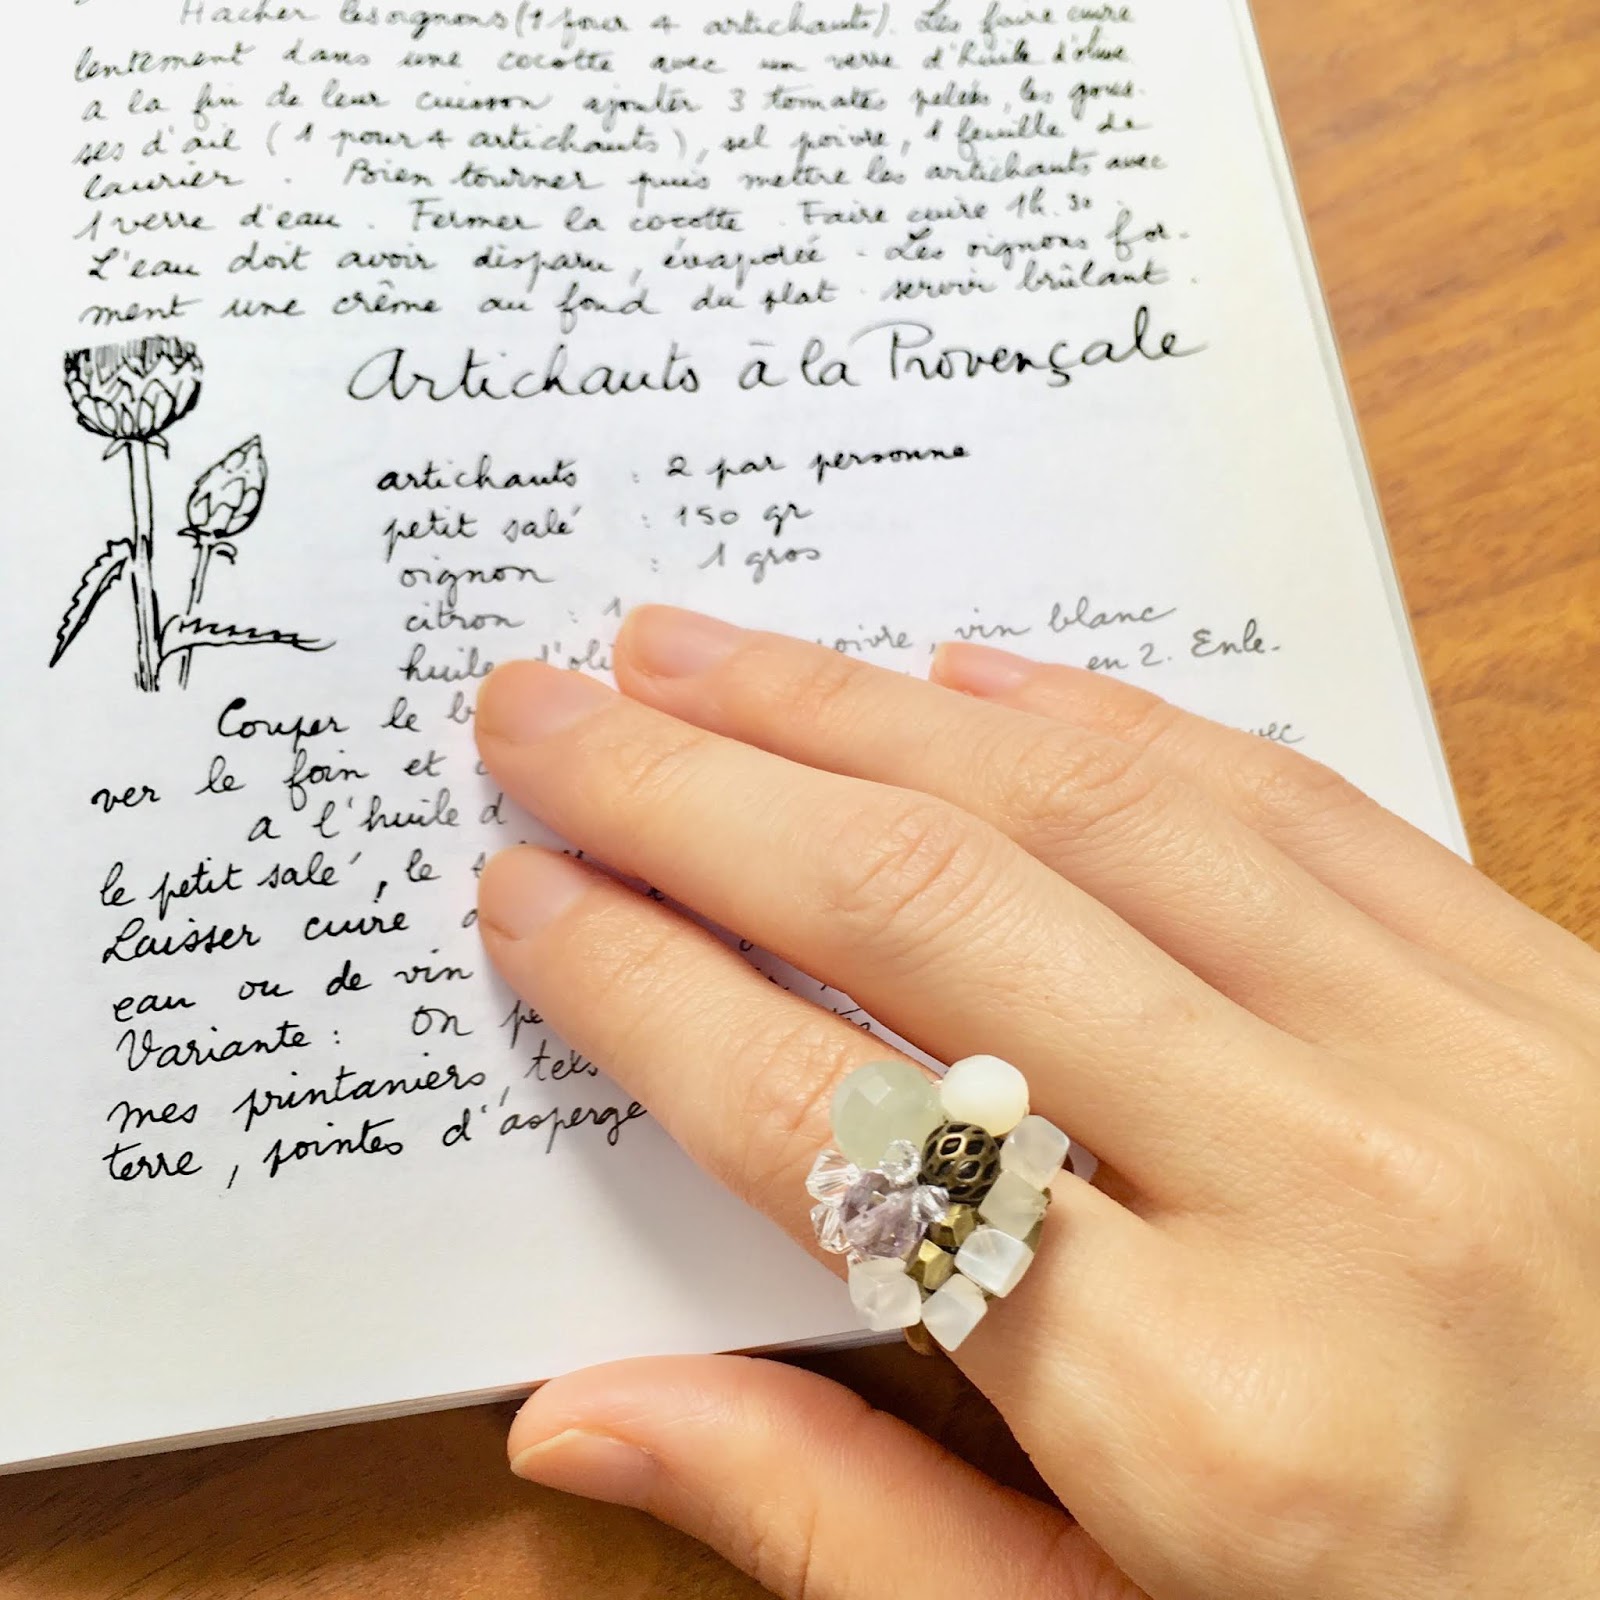 Hacher les oignons (1 pour 4 artichauts). Les faire cuire
lentement dans une cocotte avec un verre d'huile d'olive
a la fin de leur cuisson ajouter 3 tomates pelées, les gous-
ses d'ail (1 pour 4 artichauts), sel poivre, 1 feuille de
laurier. Bien tourner puis mettre les artichauts avec
1 verre d'eau. Fermer la cocotte. Faire cuire 1h.30
L'eau doit avoir disparu, évaporée - Les oignons for-
ment une crême au fond du plat. servir brûlant.
Artichauts à la Provençale
artichauts : 2 par personne
petit salé : 150 gr
oignon : 1 gros
citron : 1
huile d'oli poivre, vin blanc
Couper le en 2. Enle-
ver le foin et avec
a l'huile d
le petit salé, le
Laisser cuire
eau ou de vin
Variante : On pe
mes printaniers, tels
terre, pointes d'asperge